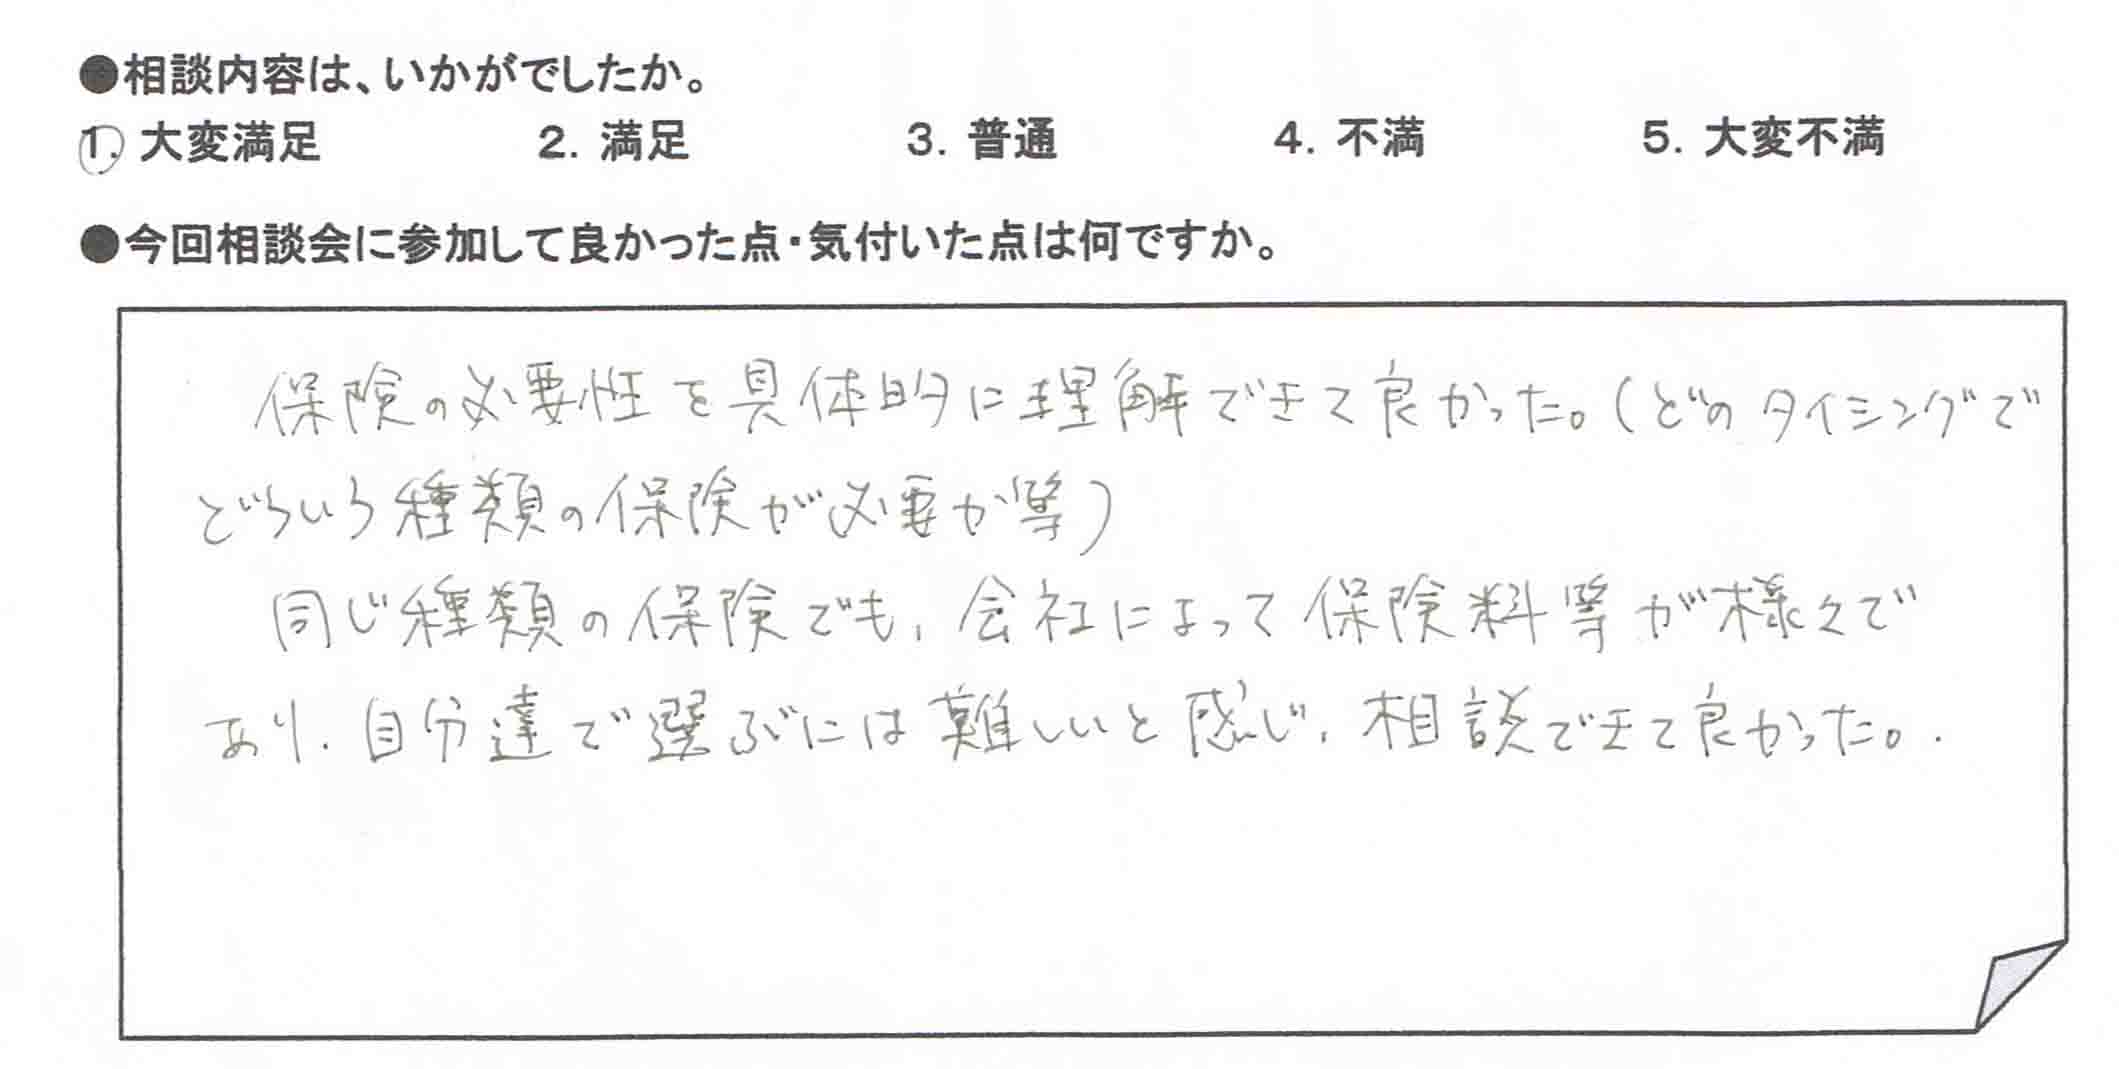 ●相談内容は、いかがでしたか。
1. 大変満足 2. 満足 3. 普通 4. 不満 5. 大変不満
●今回相談会に参加して良かった点・気付いた点は何ですか。
保険の必要性を具体的に理解できて良かった。(どのタイミングで
どういう種類の保険が必要か等)
同じ種類の保険でも、会社によって保険料等が様々で
あり、自分達で選ぶには難しいと感じ、相談できて良かった。